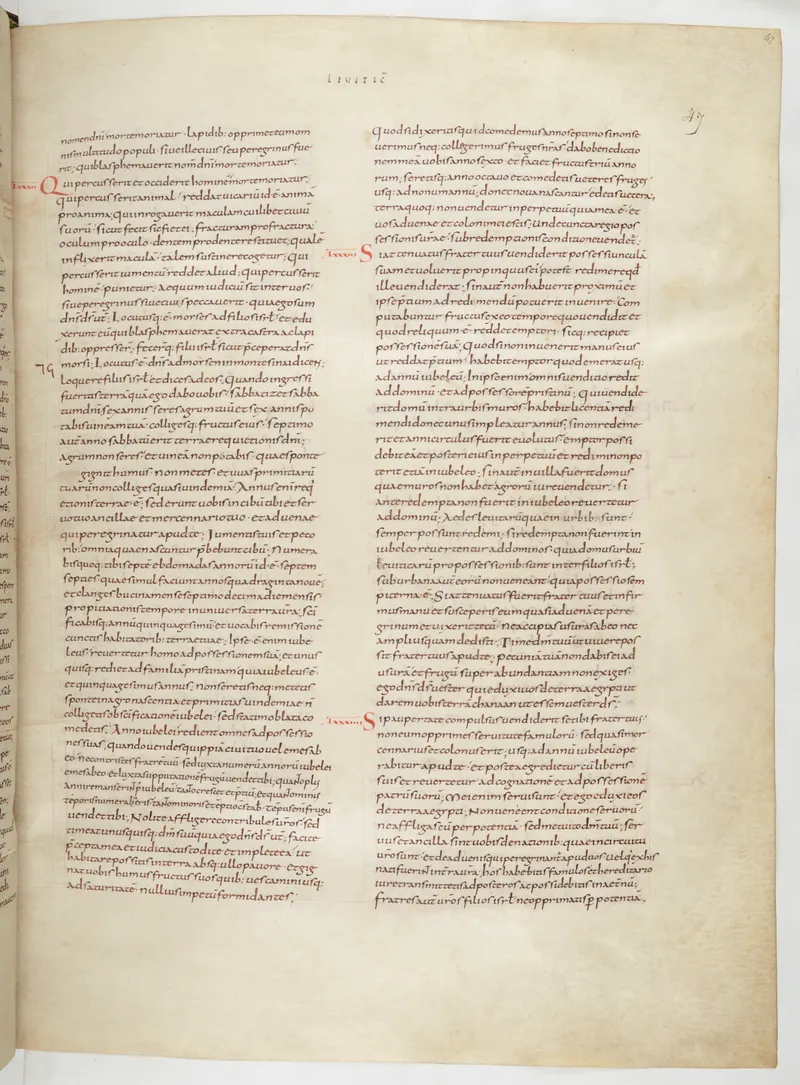 LEVITIC̄
47
nomen dn̄i morte moriatur · lapidib: opprimet eum om
nis multitudo populi · siue ille ciuis seu peregrinus fue
rit; qui blasphemauerit nom̄ dn̄i morte moriatur;
Qui percusserit et occiderit hominē morte moriatur;
qui percusserit animal reddat uicariū id ē anima
pro anima; qui inrogauerit maculam cuilibet ciuiū
suorū · sicut fecit sic fiet ei · fracturam pro fractura
oculum pro oculo · dentem pro dente restituet; quale
inflixerit maculā talem sustinere cogetur; qui
percusserit iumentū reddet aliud; qui percusserit
hominē punietur; Aequum iudiciū sit inter uos
siue peregrinus siue ciuis peccauerit · quia ego sum
dn̄s d̄s ur̄; Locutusq: ē moyses ad filios isrl̄ et edu
xerunt eū qui blasphemauerat extra castra ac lapi
dib: oppresser̄; feceruntq: filii isrl̄ sicut p̄ceperat dn̄s
moysi; Locutus ē dn̄s ad moysen in monte sinai dicens;
loquere filiis isrl̄ et dices ad eos; Quando ingressi
fueritis terrā quā ego dabo uobis · sabbatizet sabba
tum dn̄i sex annis seres agrum tuū et sex annis pu
tabis uineam tuā · colligesq: fructus eius · septimo
aut̄ anno sabbatū erit terrae requietionis dn̄i;
Agrum non seres et uineā non putabis · quae sponte
gignit humus non metes · et uuas primitiarū
tuarū non colliges quasi uindemiā · Annus enī req
etionis terrae ē; sed erunt uobis in cibū tibi et ser
uo tuo ancillae et mercennario tuo · et aduenae
qui peregrinatur apud te; Iumentis tuis et peco
rib: omnia quae nascuntur p̄bebunt cibū; Numera
bis quoq: tibi septē ebdomadas annorū id ē septem
septies quae simul faciunt annos quadraginta nouē;
et clanges bucina mense septimo decima die mensis
propitiationis tempore in uniuersa terra ur̄a; sc̄i
ficabisq: annū quinquagesimū et uocabis remissionē
cunctis habitatorib: terrae tuae; Ipse ē enim iube
leus · reuertetur homo ad possessionem suā · et unus
quisq: rediet ad familiā pristinam quia iubeleus ē
et quinquagesimus annus; non seretis neq: metetis
sponte in agro nascentia et primitias uindemiae n̄
colligetis ob sc̄ificationē iubelei · sed statim oblata co
medetis; Anno iubelei redient omnes ad possessio
nes suas; quando uendes quippiā ciui tuo uel emes ab
eo ne contristes fratrē tuū · sed iuxta numerū annorū iubelei
emes ab eo · et iuxta supputationē frugū uendet tibi; quanto plus
anni remanserint p̄ iubeleū tanto crescet et p̄tiū; et quanto minus
temporis numeraueris tanto minoris et emptio c̄stabit; tempus enī frugū
uendet tibi; Nolite affligere contribules ur̄os sed
timeat unusquisq: dm̄ suū quia ego dn̄s d̄s ur̄; facite
p̄cepta mea et iudicia custodite et implete ea · ut
habitare possitis in terra absq: ullo pauore · et gig
nat uobis humus fructus suos quib: uescamini usq:
ad saturitatē nullius impetū formidantes;
Quod si dixeritis quid comedemus anno septimo si non se
uerimus neq: collegerimus fruges nr̄as · dabo benedictio
nem meā uobis anno sexto · et faciet fructus triū anno
rum; seretisq: anno octauo et comedetis ueteres fruges
usq: ad nonum annū; donec noua nascantur edetis uetera;
terra quoq: non uendetur in perpetuū quia mea ē · et
uos aduenae et coloni mei estis; Unde cuncta regio pos
sessionis ur̄ae · sub redemptionis condicione uendet̄;
Si attenuatus frater tuus uendiderit possessiunculā
suam et uoluerit propinquus ei potest redimere qd
ille uendiderat; sin aut̄ non habuerit proximū et
ipse p̄tium ad redimendū potuerit inuenire · Com
putabuntur fructus ex eo tempore quo uendidit et
quod reliquum ē · reddet emptori · sicq: recipiet
possessionē suā; Quod si non inuenerit manus eius
ut reddat p̄tium habebit emptor quod emerat usq:
ad annū iubeleū; In ipso enim omnis uenditio redit
ad dominū et ad possessorē pristinū; Qui uendide
rit domū intra urbis muros habebit licentiā redi
mendi donec unus impleatur annus; si non redeme
rit et anni circulus fuerit euolutus · emptor possi
debit eā et posteri eius in perpetuū et redimi non po
terit etiā in iubeleo; sin aut̄ in uilla fuerit domus
quae muros non habet agrorū iure uendetur; si
ante redempta non fuerit in iubeleo reuertetur
ad dominū · Aedes leuitarū quae in urbib: sunt
semper possunt redimi; si redemptae non fuerint in
iubeleo reuertentur ad dominos · quia domus urbiū
leuiticarū pro possessionib: sunt inter filios isrl̄;
suburbana aut̄ eorū non ueneant quia possessio sem
piterna ē; Si attenuatus fuerit frater tuus et infir
mus manu et susceperis eum quasi aduenā et pere
grinum et uixerit tecū · ne accipias usuras ab eo nec
amplius quam dedisti; Time dm̄ tuū ut uiuere pos
sit frater tuus apud te; pecuniā tuā non dabis ei ad
usurā · et frugū superabundantiam non exiges;
ego dn̄s d̄s uester qui eduxi uos de terra aegypti ut
darem uobis terrā chanaan ut essem uester d̄s;
Si paupertate compulsus uendiderit se tibi frater tuus
non eum opprimes seruitute famulorū · sed quasi mer
cennarius et colonus erit; usq: ad annū iubeleū ope
rabitur apud te · et postea egredietur cū liberis
suis et reuertetur ad cognationē et ad possessionē
patrū suorū; Mei enim serui sunt et ego eduxi eos
de terra aegypti; Non ueneant condicione seruorū
ne affligas eū per potentiā · sed metuito dm̄ tuū; ser
uus et ancilla sint uobis de nationib: quae in circuitu
ur̄o sunt · et de aduenis qui peregrinantur apud uos uel qui ex his
nati fuerint in terra ur̄a; hos habebitis famulos et hereditario
iure transmittetis ad posteros ac possidebitis in aet̄nū;
fratres aut̄ ur̄os filios isrl̄ ne opprimatis p̄ potentiā;